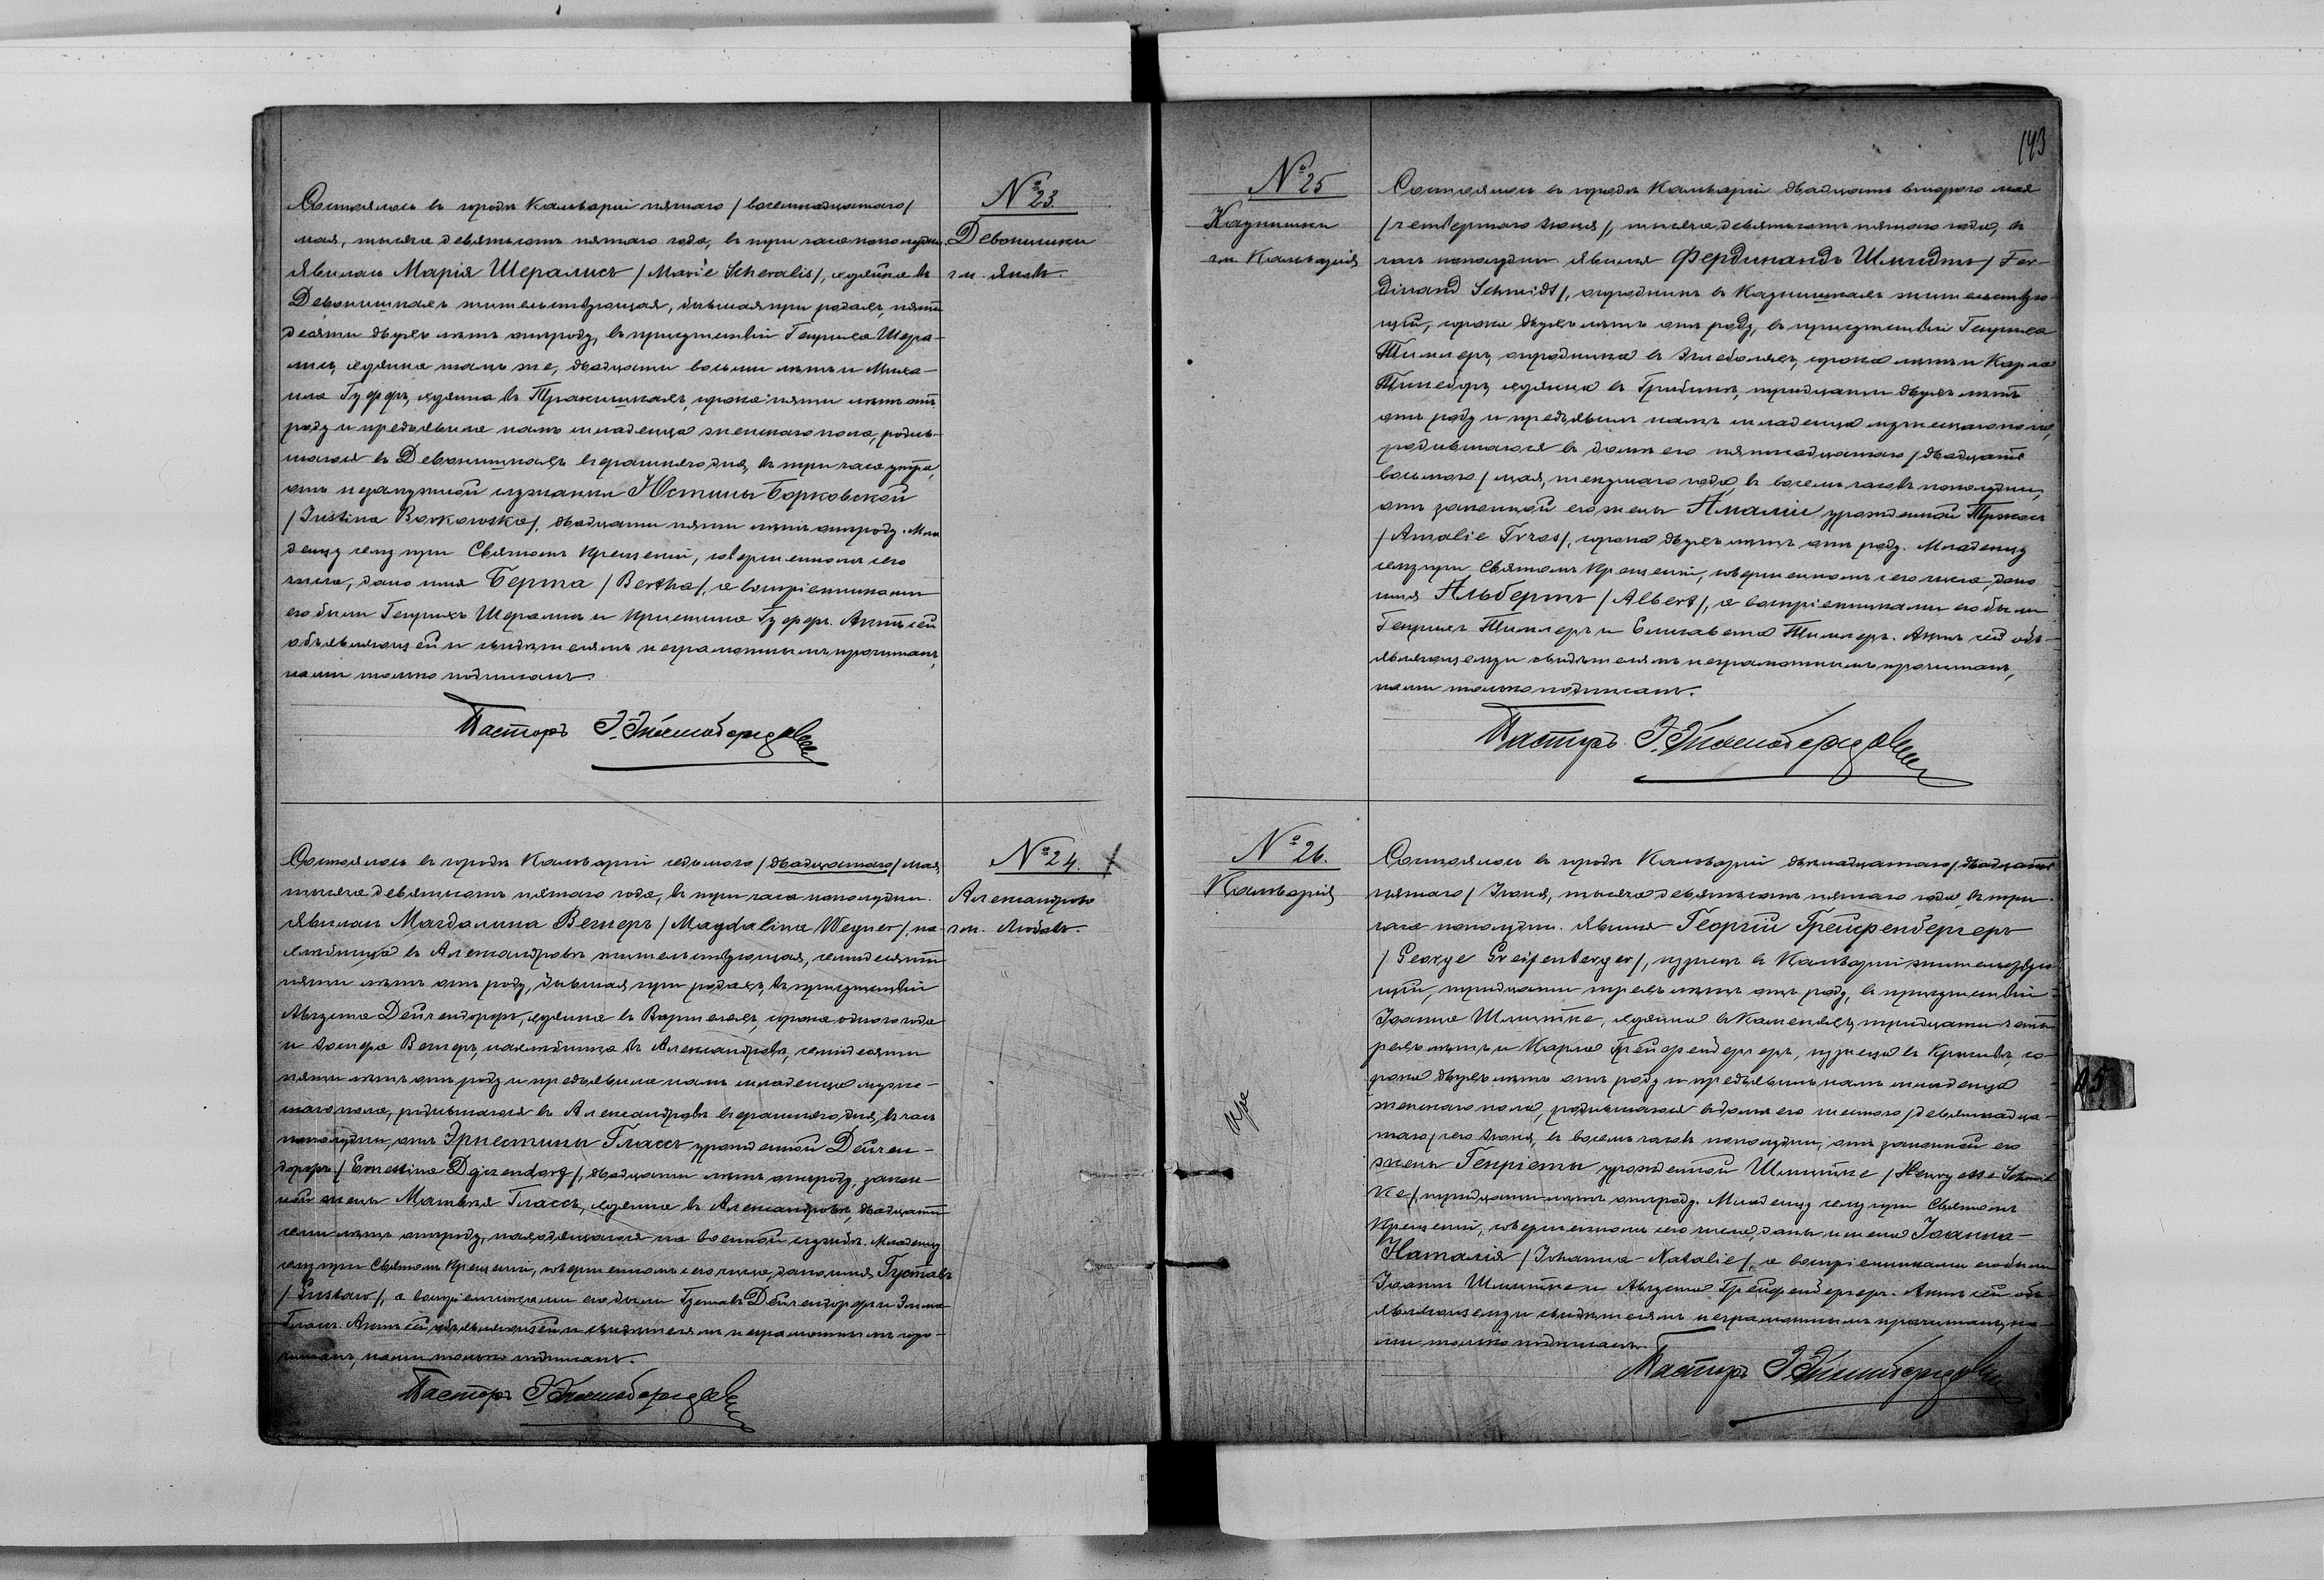 № 23.
Девонишки
гм. Яновъ.
Состоялось въ городѣ Кальваріи пятаго /восемнадцатаго/
мая, тысяча девятьсотъ пятаго года, въ три часа пополудни.
Явилась Марія Шералисъ /Marie Scheralis/, хозяйка въ
Девонишкахъ жительствующая, бывшая при родахъ, пяти
десяти двухъ лѣтъ отъ роду, въ присутствіи Генриха Шера-
лисъ, хозяина тамъ же, двадцати восьми лѣтъ и Миха-
ила Гуффъ, хозяина въ Тракишкахъ, сорока пяти лѣтъ отъ
роду и предъявила намъ младенца женскаго пола, родив-
шагося въ Девонишкахъ вчерашняго дня, въ три часа утра,
отъ незамужной служанки Юстины Борковской
/Justina Borkowska/, двадцати пяти лѣтъ отъ роду. Мла
денцу сему при Святомъ Крещеніи, совершенномъ сего
числа, дано имя Берта /Bertha/, а воспріемниками
его были Генрихъ Шералисъ и Кристина Гуффъ. Актъ сей
объявляющей и свидѣтелямъ неграмотнымъ прочитанъ,
нами только подписанъ.
Пасторъ
№ 24.
Александрово
гм. Любавъ.
Состоялось въ городѣ Кальваріи седьмого /двадцатаго/ мая,
тысяча девятьсотъ пятаго года, въ три часа пополудни.
Явилась Магдалина Вегнеръ /Magdalina Wegner/, на-
емница въ Александровѣ жительствующая, семидесяти
пяти лѣтъ отъ роду, бывшая при родахъ, въ присутствіи
Августа Дейчендорфъ, хозяина въ сорока одного года
и Іосифа Вегнеръ, наемника въ Александровѣ, семидесяти
пяти лѣтъ отъ роду и предъявила намъ младенца муже-
скаго пола, родившагося въ Александровѣ вчерашняго дня, въ часъ
пополудни, отъ Эрнестины Глассъ урожденной Дейчен-
дорфъ /Ernestine Dejzendorf/, двадцати лѣтъ отъ роду, закон-
ной жены Матвѣя Глассъ, хозяина въ Александровѣ, двадцати
семи лѣтъ отъ роду, находящагося на военной службѣ. Младенцу
сему при Святомъ Крещеніи, совершенномъ сего числа, дано имя Густавъ
/Gustaw/, а воспріемниками его были Густавъ Дейчендорфъ и
Глассъ. Актъ сей объявляющей и свидѣтелямъ неграмотнымъ про-
читанъ, нами только подписанъ.
Пасторъ
143
№ 25
Казнишки
гм. Кальварія
Состоялось въ городѣ Кальваріи двадцать второго мая
/четвертаго Іюня/, тысяча девятьсотъ пятаго года, въ
часъ пополудни. Явился Фердинандъ Шмидтъ /Fer-
dinand Schmidt/, огородникъ въ Казнишкахъ жительствую-
щій, сорока двухъ лѣтъ отъ роду, въ присутствіи Генриха
огородника въ сорока лѣтъ и Карла
хозяина въ тридцати двухъ лѣтъ
отъ роду и предъявилъ намъ младенца мужескаго пола,
родившагося въ домѣ его пятнадцатаго /двадцать
восьмого/ мая, текущаго года, въ восемь часовъ пополудни,
отъ законной его жены Амаліи урожденной
/Amalie Tyras/, сорока двухъ лѣтъ отъ роду. Младенцу
сему при Святомъ Крещеніи, совершенномъ сего числа, дано
имя Альбертъ /Albert/, а воспріемниками его были
Генрихъ и Елисавета Актъ сей объ-
являющему и свидѣтелямъ неграмотнымъ прочитанъ,
нами только подписанъ.
Пасторъ
№ 26.
Кальварія
Состоялось въ городѣ Кальваріи двѣнадцатаго /двадцать
пятаго/ Іюня, тысяча девятьсотъ пятаго года, въ три
часа пополудни. Явился Георгій Грейфенбергеръ
/George Greifenberger/, кузнецъ въ Кальваріи жительствую-
щій, тридцати трехъ лѣтъ отъ роду, въ присутствіи
Іоанна Шмитке, хозяина въ тридцати четы-
рехъ лѣтъ и Карла Грейфенбергеръ, кузнеца въ со-
рока двухъ лѣтъ отъ роду и предъявилъ намъ младенца
женскаго пола, родившагося въ домѣ его шестого /девятнадца-
таго/ сего Іюня, въ восемь часовъ пополудни, отъ законной его
жены Генріеты урожденной Шмитке /Henryette Schmit
ke/, тридцати лѣтъ отъ роду. Младенцу сему при Святомъ
Крещеніи, совершенномъ сего числа, даны имена Іоанна-
Наталія /Johanna-Natalie/, а воспріемниками его были
Іоаннъ Шмитке и Августа Грейфенбергеръ. Актъ сей объ-
являющему и свидѣтелямъ неграмотнымъ прочитанъ, на-
ми только подписанъ.
Пасторъ